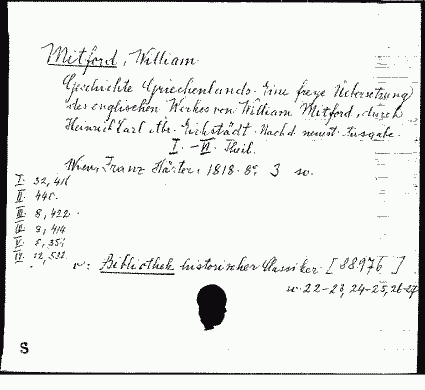 Mitford, William
Geschichte Griechenlands. Eine freye Übersetzung
des englischen Werkes von William Mitford, durch
Heinrich Carl Abr. Eichstädt. Nach d. neuest. Ausgabe.
I. - VI. Theil.
Wien, Franz Härter, 1818. 8°. 3
I. 32, 416
II. 440.
III. 8, 422
IV. 9, 414
V. 8, 351
VI. 12, 532
v: Bibliothek historischer Classiker. [88976]
22-23, 24-25, 26-27
S